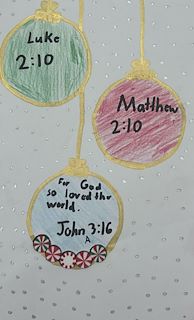 Luke
2:10
Matthew
2:10
For God
so loved the
world.
John 3:16
A